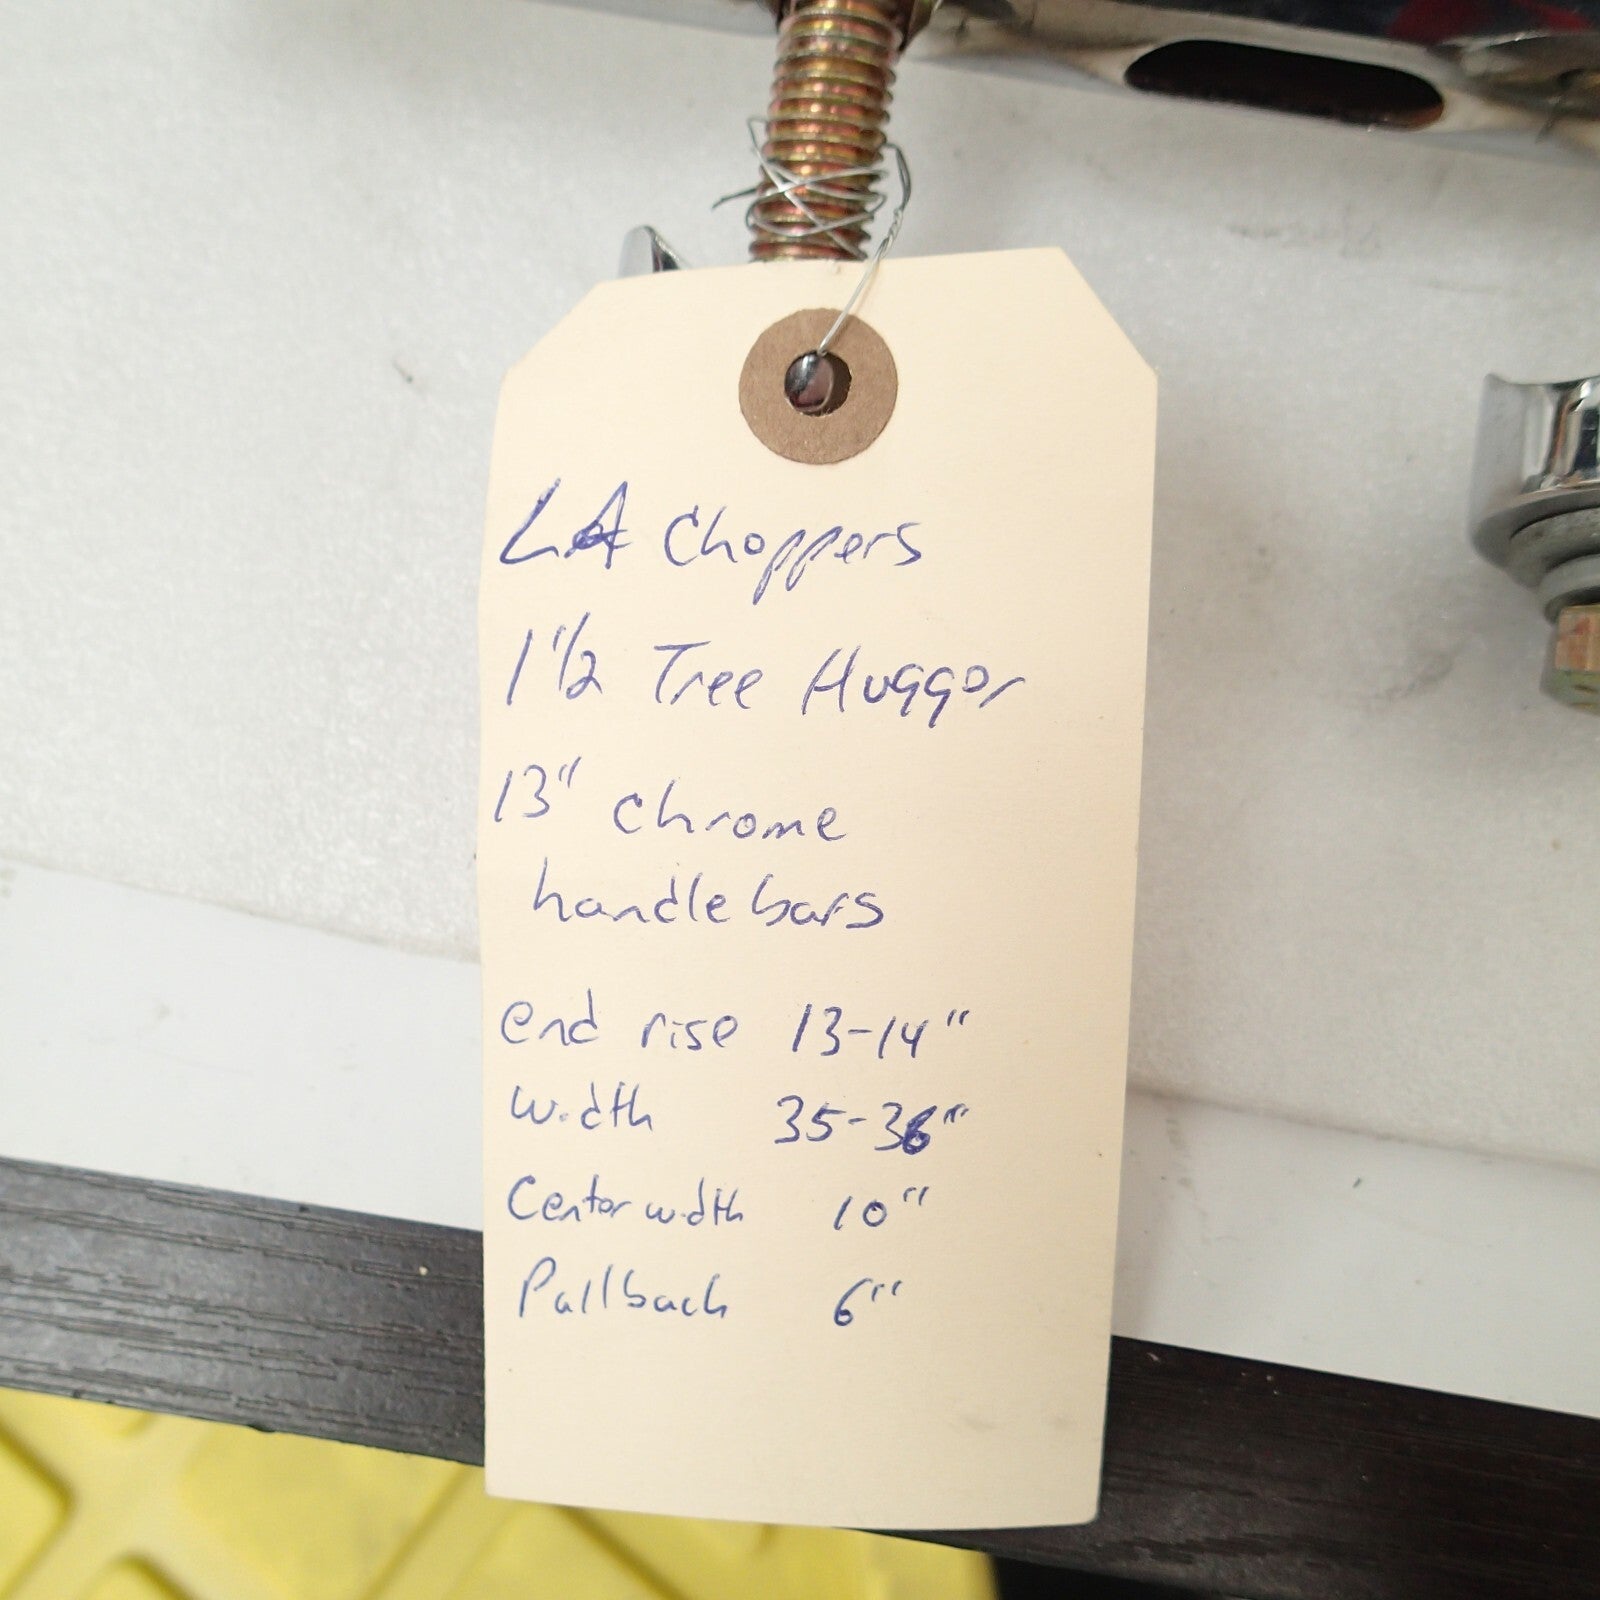 LA Choppers
1 1/2 Tree Huggor
13" chrome
handlebars
end rise 13-14"
width 35-36"
Center width 10"
Pullback 6"